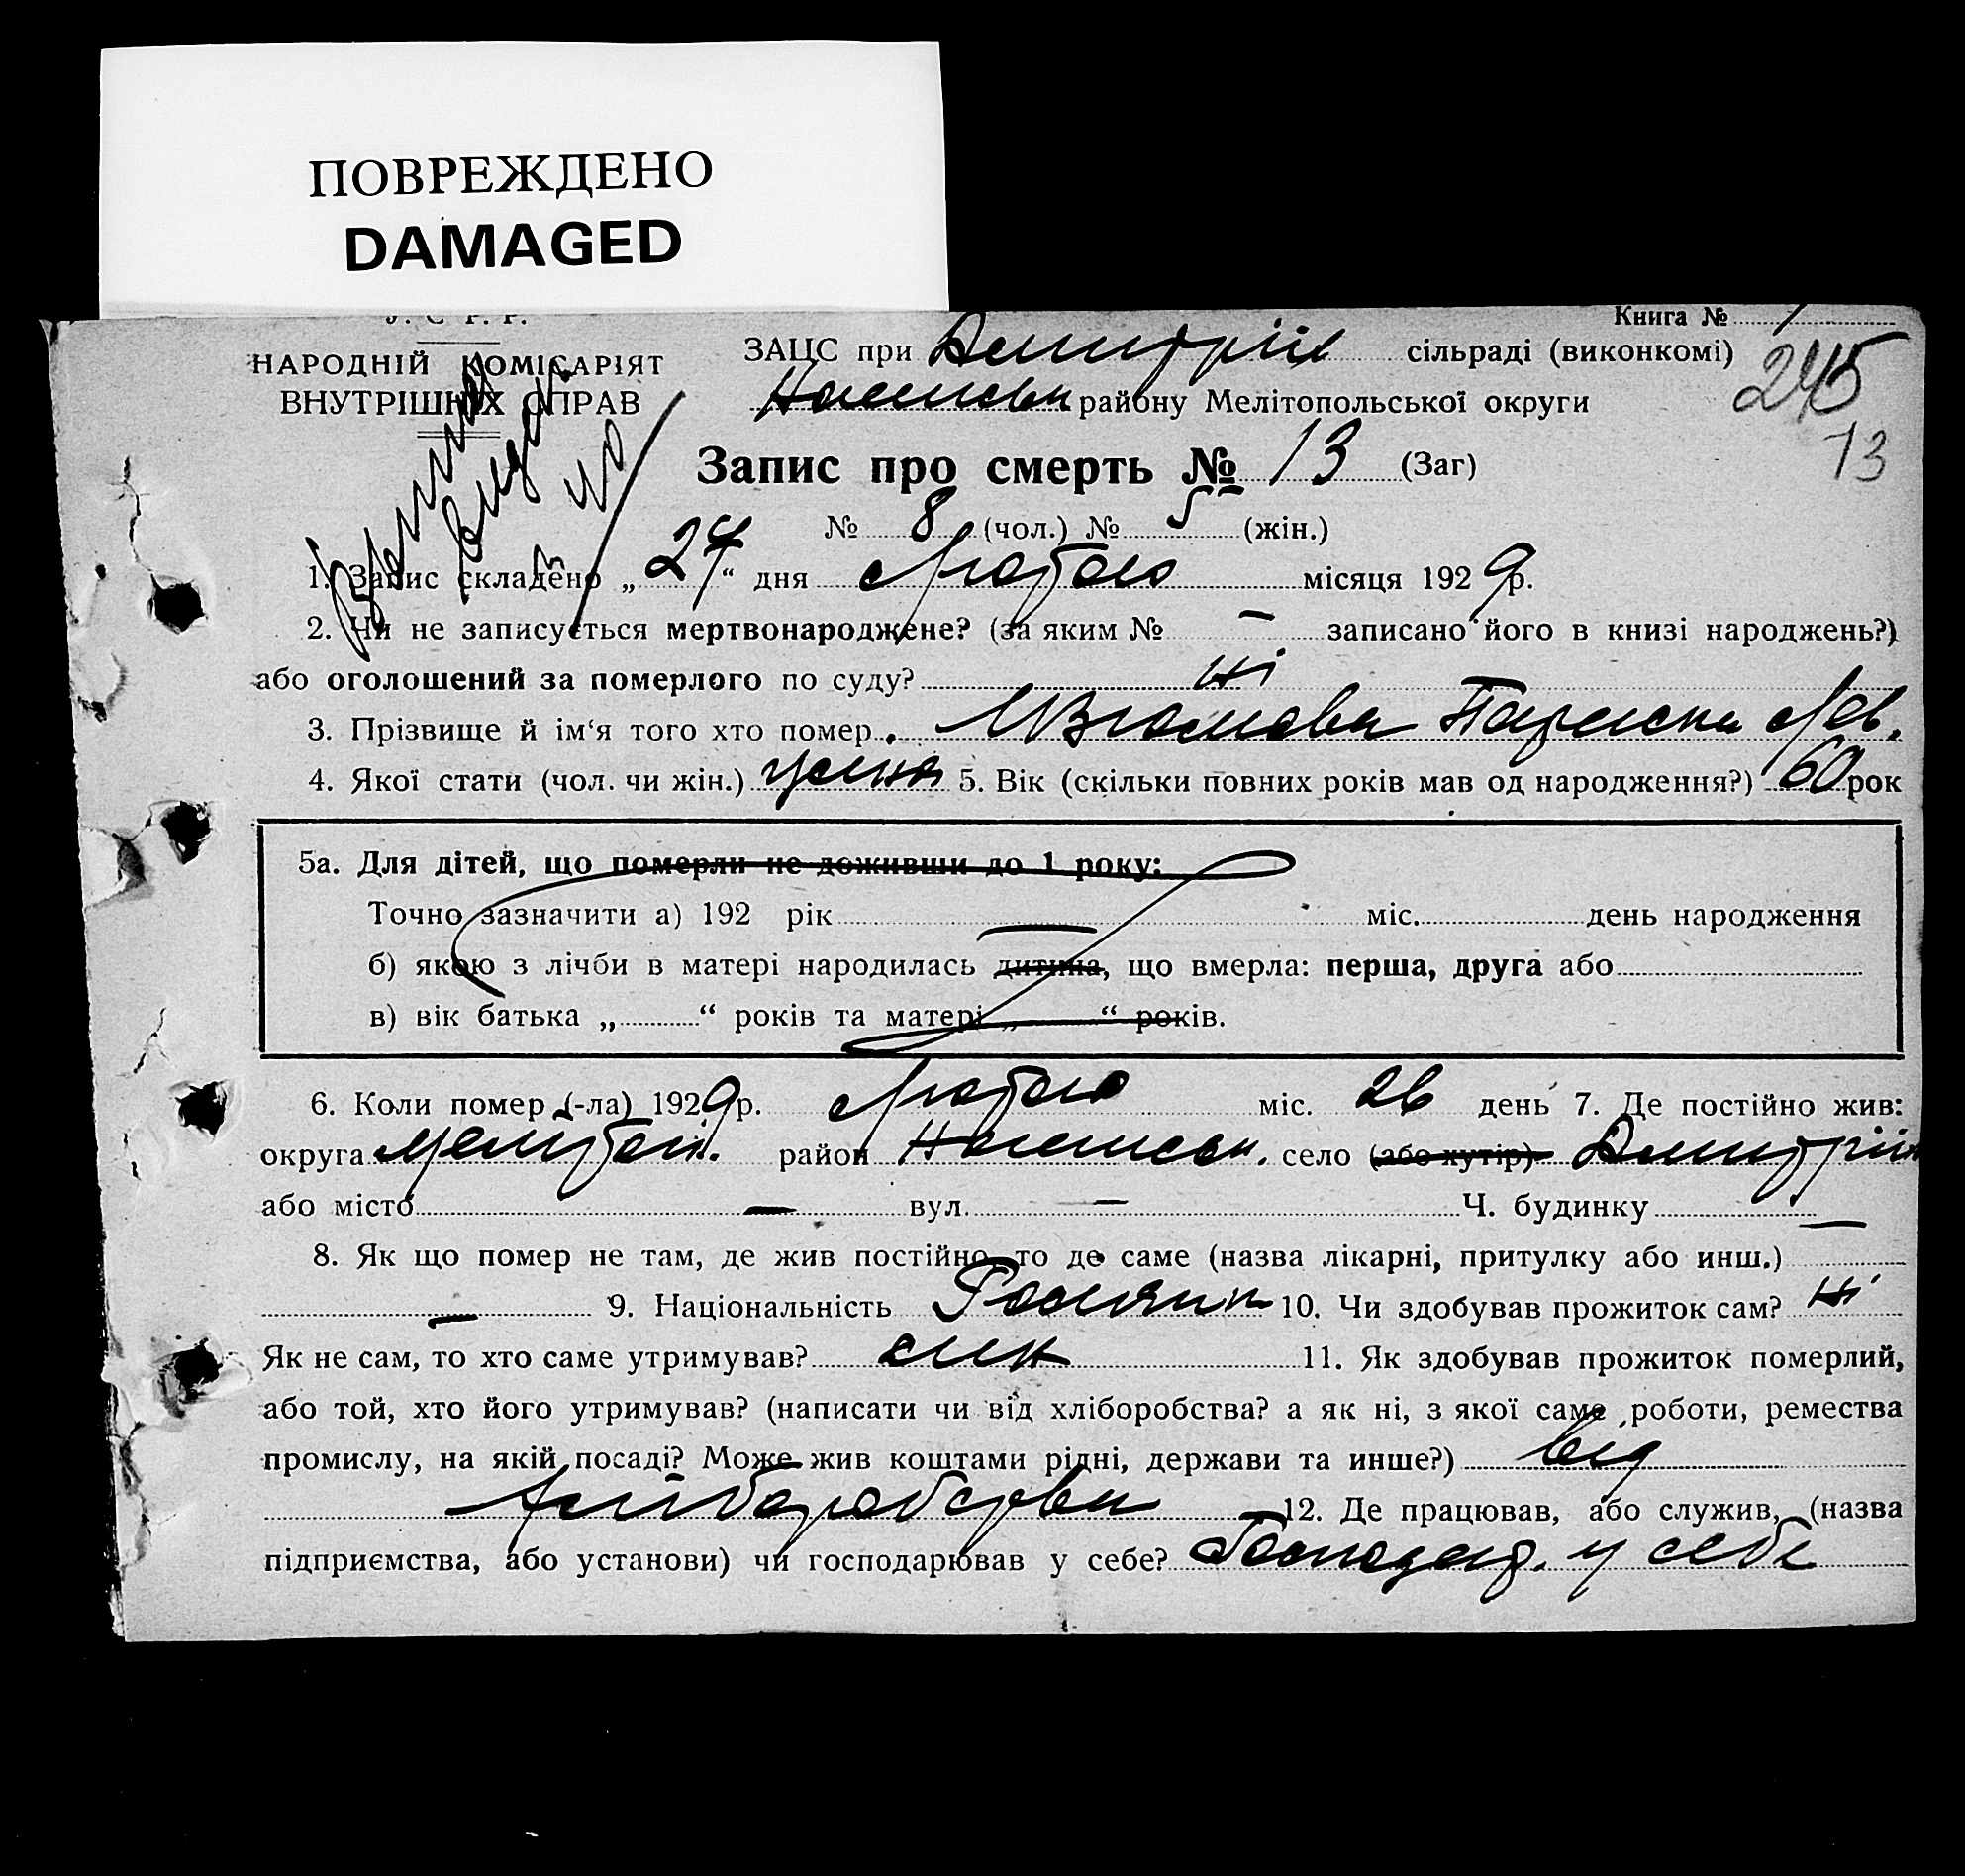 ПОВРЕЖДЕНО
DAMAGED
У. С Р. Р.
Книга №
НАРОДНІЙ КОМІСАРІЯТ
ВНУТРІШНІХ СПРАВ
ЗАЦС при Дмитрів сільраді (виконкомі)
району Мелітопольської округи
245
13
Запис про смерть № 13 (Заг)
№ 8 (чол.) № 5 (жін.)
1. Запис складено „ 27 “ дня Лютого місяця 1929 р.
2. Чи не записується мертвонароджене? (за яким № — записано його в книзі народжень?)
або оголошений за померлого по суду? Ні
3. Прізвище й ім‘я того хто помер
4. Якої стати (чол. чи жін.) жіноч 5. Вік (скільки повних років мав од народження?) 60 рок
5а. Для дітей, що померли не доживши до 1 року:
Точно зазначити а) 192 рік міс. день народження
б) якою з лічби в матері народилась дитина, що вмерла: перша, друга або
в) вік батька „ “ років та матері „ “ років.
6. Коли помер (-ла) 1929 р. Лютого міс. 26 день 7. Де постійно жив:
округа Мелітоп. район село (або хутір) Дмитрів
або місто — вул. — Ч. будинку —
8. Як що помер не там, де жив постійно, то де саме (назва лікарні, притулку або инш.)
— 9. Національність 10. Чи здобував прожиток сам? Ні
Як не сам, то хто саме утримував? син 11. Як здобував прожиток померлий,
або той, хто його утримував? (написати чи від хліборобства? а як ні, з якої саме роботи, ремества
промислу, на якій посаді? Може жив коштами рідні, держави та инше?) від
хліборобства 12. Де працював, або служив, (назва
підприємства, або установи) чи господарював у себе? Господар. у себе